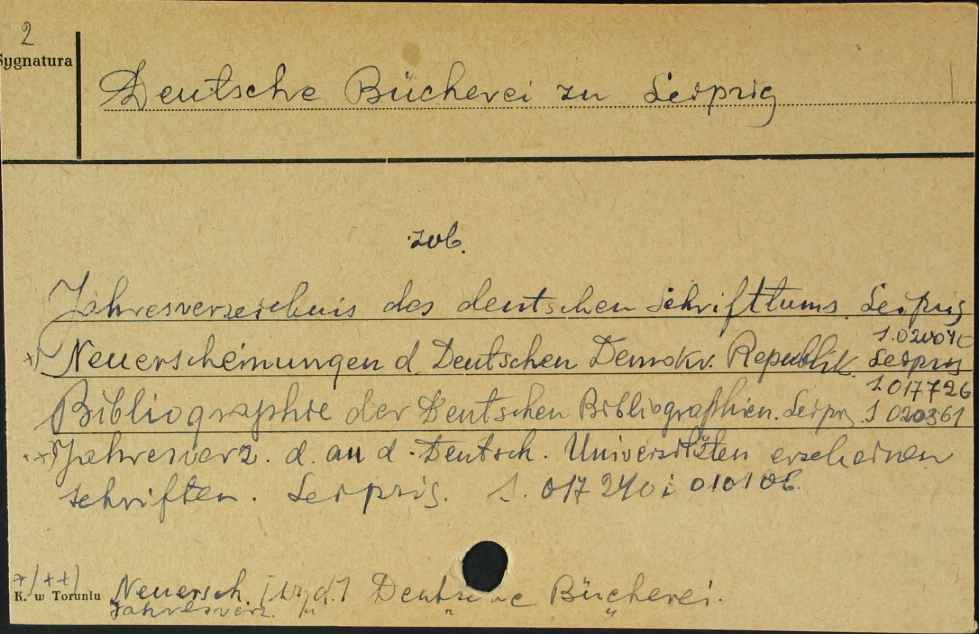 2
Sygnatura
Deutsche Bücherei zu Leipzig
zob.
Jahresverzeichnis des deutschen Schrifttums. Leipzig
*) Neuerscheinungen d. Deutschen Demokr. Republik. Leipzig
1.017726
Bibliographie der Deutschen Bibliographien. Leipz. 1 020361
Jahresverz. d. an d. Deutsch. Universitäten erscheinen
schriften. Leipzig. 1. 017 240 i 010106
*/**)
K. w Toruniu
Neuersch. Deutsche Bücherei.
Jahresverz. " " "